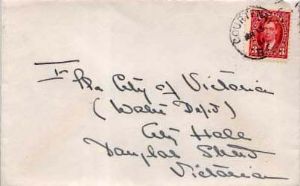 COURT
3
The City of Victoria
(Water Dep't)
City Hall
Douglas Street
Victoria